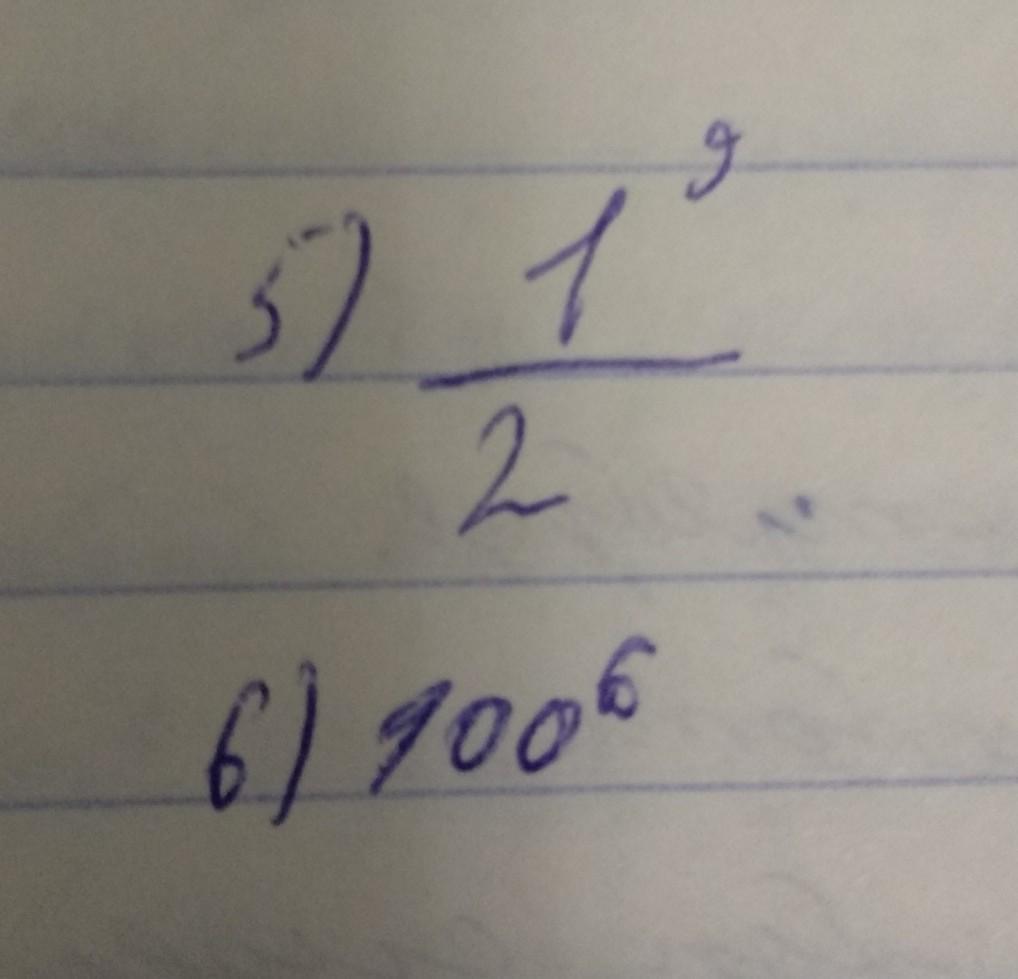 5) 1⁹
2
6) 100⁶